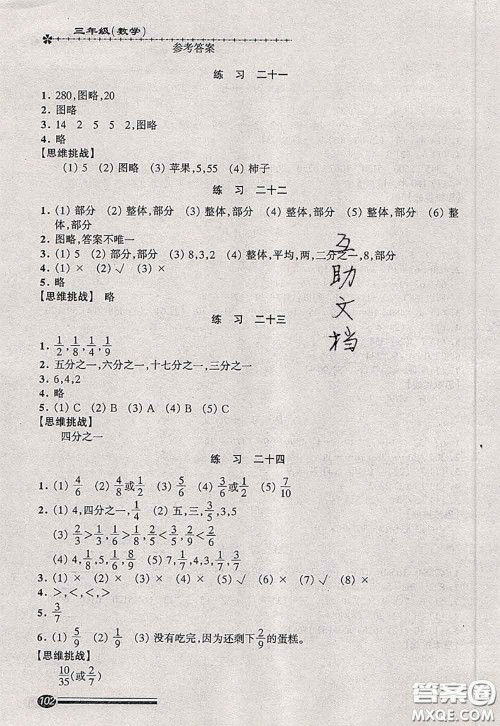 三年级(数学)
参考答案
练 习 二十一
1. 280,图略,20
2. 图略
3. 14 2 5 5 2,图略
4. 略
【思维挑战】
(1) 5 (2) 图略 (3) 苹果,5,55 (4) 柿子
练 习 二十二
1. (1) 部分 (2) 整体,部分 (3) 整体,部分 (4) 部分 (5) 整体,部分 (6) 整
体,部分
2. 图略,答案不唯一
3. (1) 5 (2) 部分,部分 (3) 8,3,2 (4) 整体,平均,两,二分之一,8,部分
4. (1) × (2) √ (3) ×
5. 略
【思维挑战】 略
互助文档
练 习 二十三
1. 1/2,1/8,1/4,1/9
2. 五分之一,六分之一,十七分之一,三分之一
3. 6,4,2
4. 略
5. (1) C (2) B (3) A (4) A (5) C
【思维挑战】
四分之一
练 习 二十四
1. (1) 4/6 (2) 4/8或1/2 (3) 5/6 (4) 4/8或1/2 (5) 7/10
2. (1) 4,四分之一,1/4 (2) 五,三,3/5
(3) 2/3>1/3,1/6<3/6,5/8>3/8,2/9<4/9
(4) 4,1/8,5,1/6,8/9 (5) 7,4/7,4,3,1/7,3/7
3. (1) × (2) × (3) √ (4) × (5) √ (6) × (7) √ (8) ×
4. >,<,<,>
5. 3/7
6. (1) 5/9 (2) 2/9 (3) 没有吃完,因为还剩下2/9的蛋糕。
【思维挑战】
10/35(或2/7)
102
答案圈
MXQE.COM